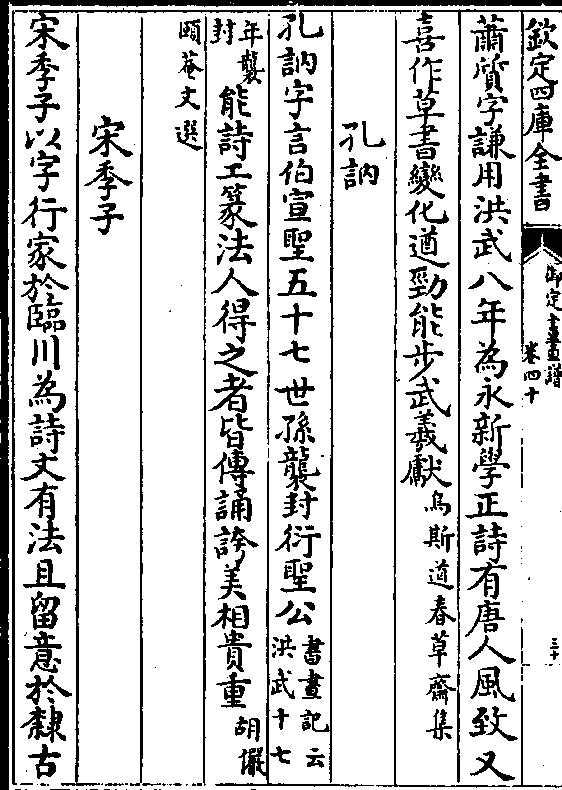 欽定四庫全書
御定書畫譜
卷四十
三十
蕭質字謙用洪武八年為永新學正詩有唐人風致又
喜作草書變化遒勁能步武羲獻烏斯道春草齋集
孔訥
孔訥字言伯宣聖五十七世孫襲封衍聖公書畫記云洪武十七
年襲封能詩工篆法人得之者皆傳誦誇美相貴重胡儼
頤菴文選
宋季子
宋季子以字行家於臨川為詩文有法且留意於隸古